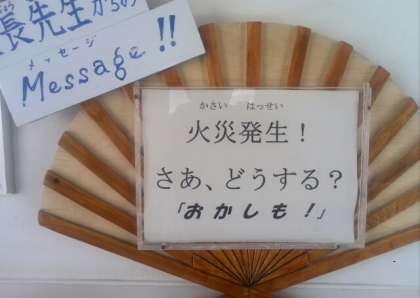 長先生からの
メッセージ
Message!!
かさい はっせい
火災発生！
さあ、どうする？
「おかしも！」